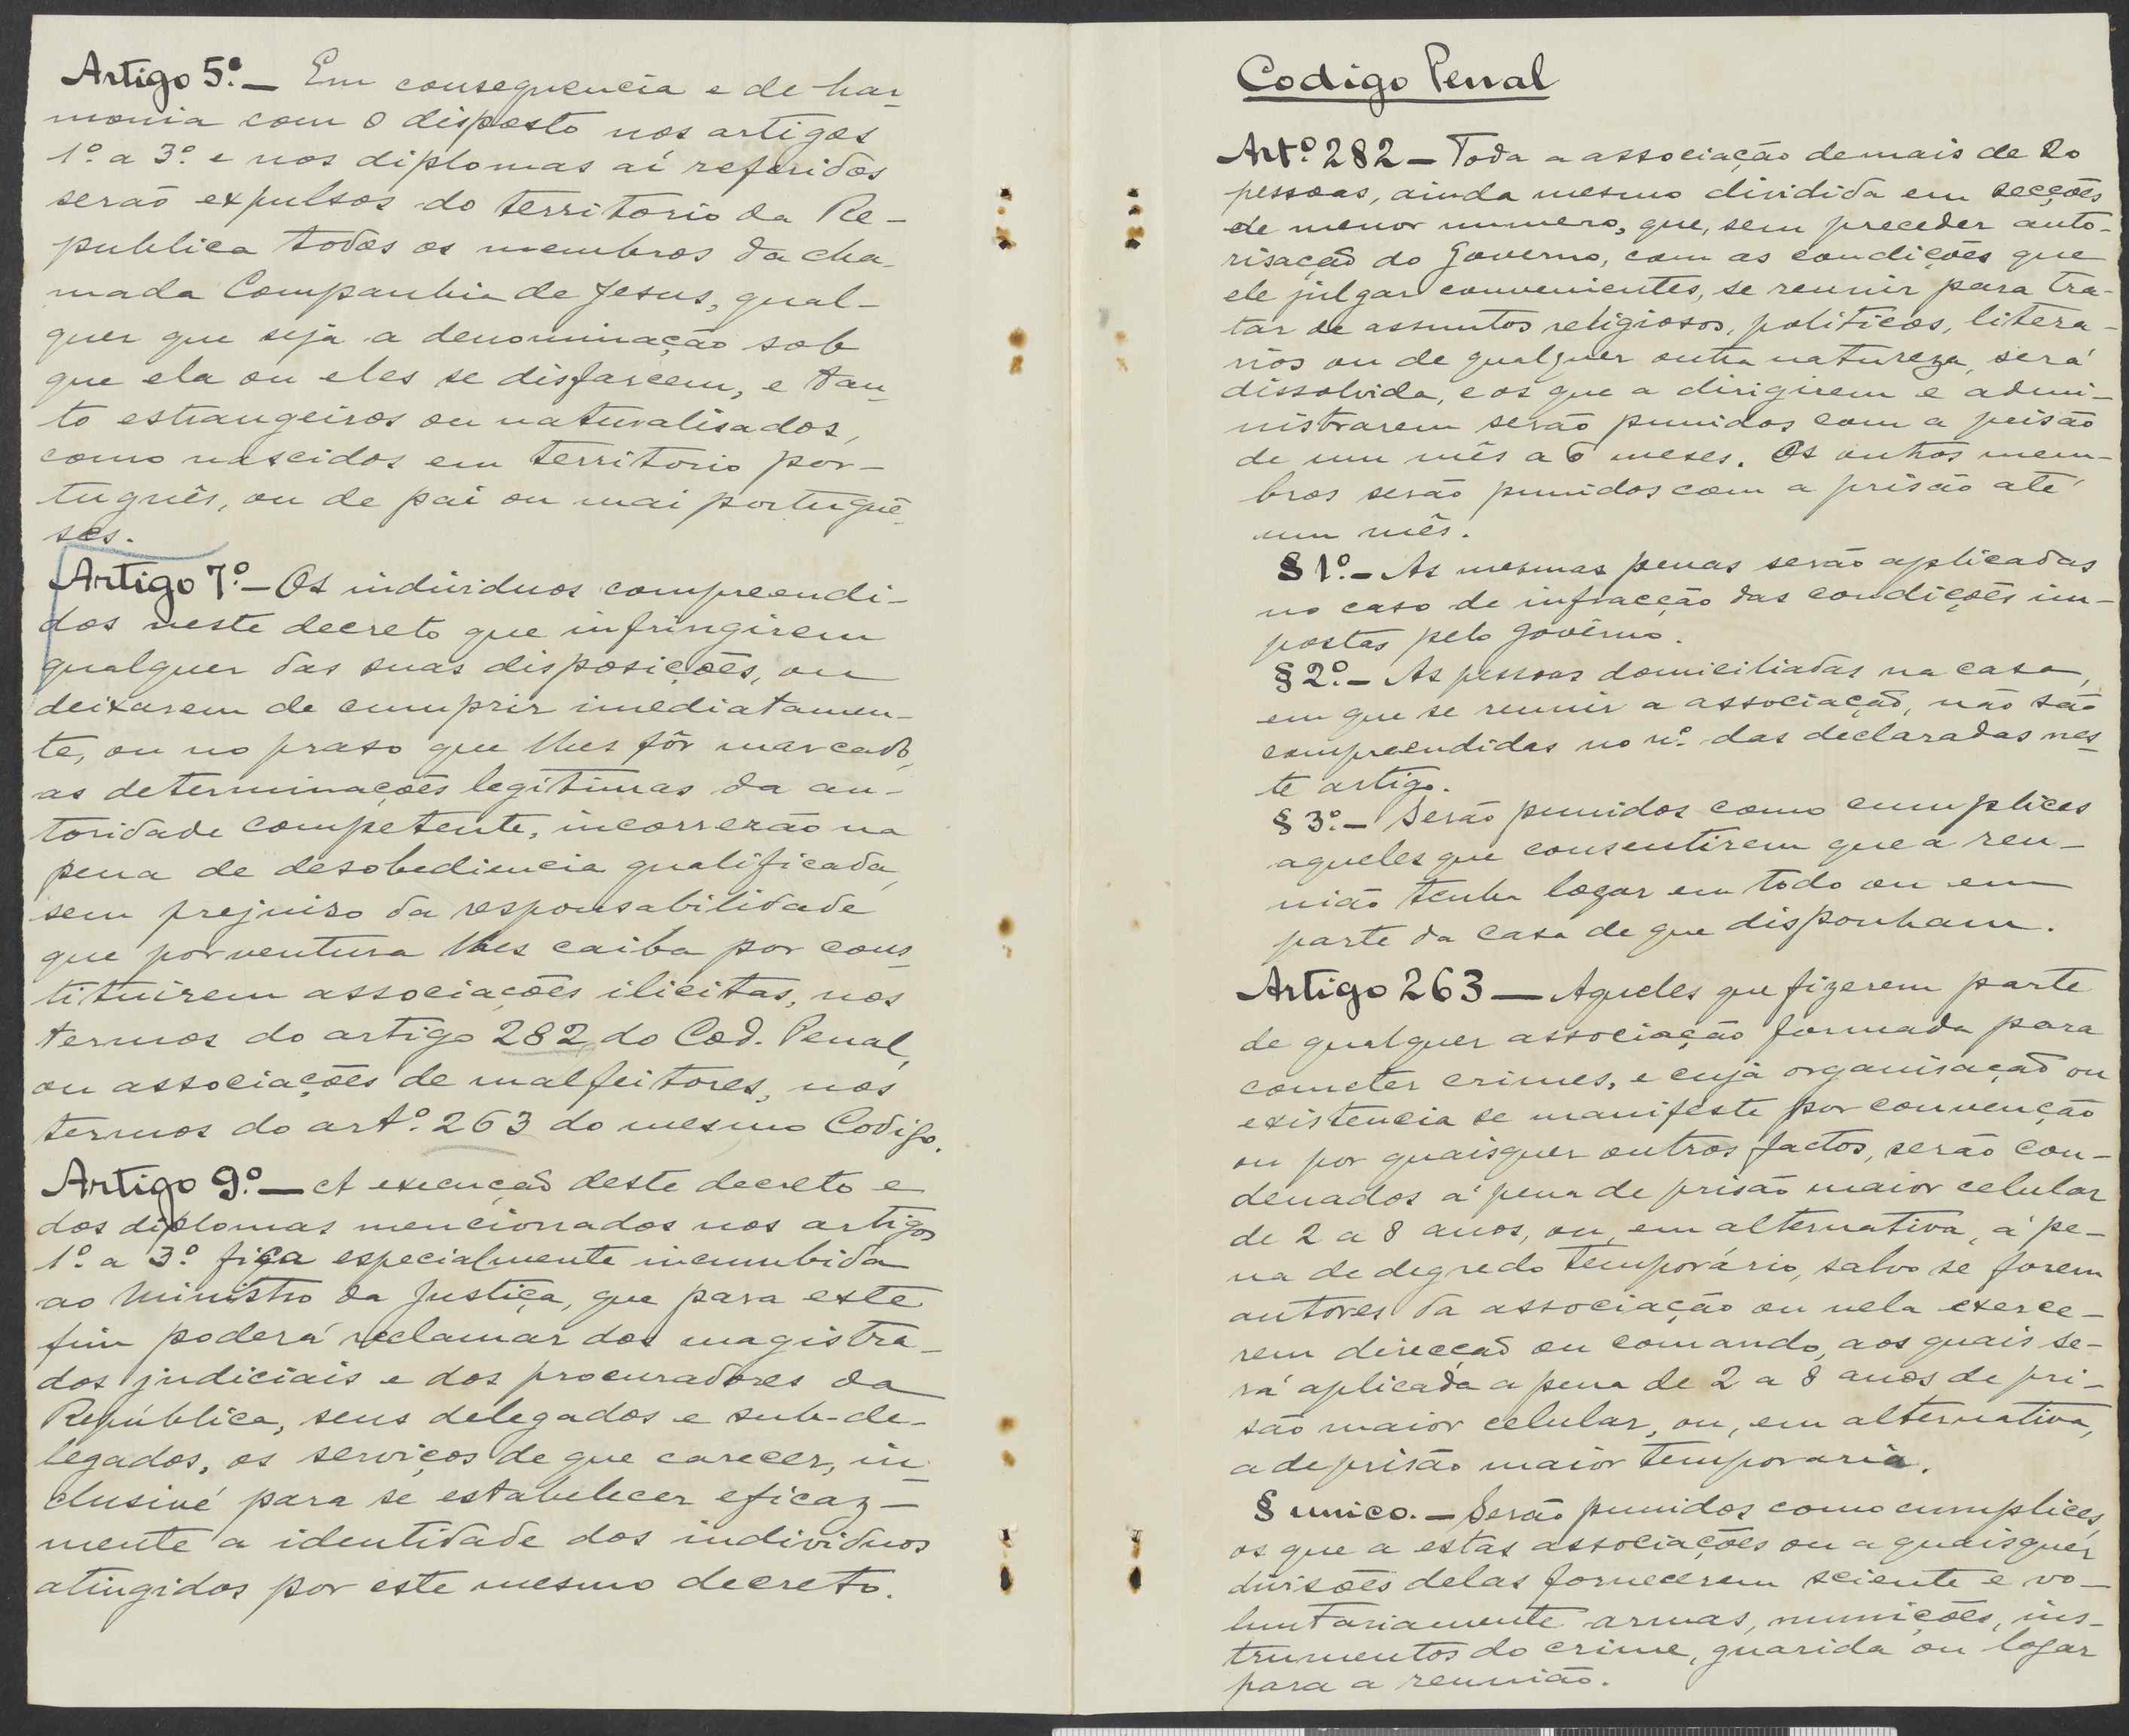 Artigo 5.º — Em consequencia e de har-
monia com o disposto nos artigos
1.º a 3.º e nos diplomas aí referidos
serão expulsos do territorio da Re-
publica todos os membros da cha-
mada Companhia de Jesus, qual-
quer que seja a denominação sob
que ela ou eles se disfarcem, e tan-
to estrangeiros ou naturalisados,
como nascidos em territorio por-
tuguês, ou de pai ou mai portuguê-
ses.
Artigo 7.º — Os individuos compreendi-
dos neste decreto que infringirem
qualquer das suas disposições, ou
deixarem de cumprir imediatamen-
te, ou no praso que lhes fôr marcado,
as determinações legítimas da au-
toridade competente, incorrerão na
pena de desobediencia qualificada,
sem prejuizo da responsabilidade
que porventura lhes caiba por cons-
tituirem associações ilicitas, nos
termos do artigo 282 do Cod. Penal,
ou associações de malfeitores, nos
termos do art.º 263 do mesmo Codigo.
Artigo 9.º — A execução deste decreto e
dos diplomas mencionados nos artigos
1.º a 3.º fica especialmente incumbida
ao Ministro da Justiça, que para este
fim poderá reclamar dos magistra-
dos judiciais e dos procuradores da
República, seus delegados e sub-de-
legados, os serviços de que carecer, in-
clusivé para se estabelecer eficaz-
mente a identidade dos individuos
atingidos por este mesmo decreto.
Codigo Penal
Art.º 282 — Toda a associação de mais de 20
pessoas, ainda mesmo dividida em secções
de menor numero, que, sem preceder auto-
risação do Governo, com as condições que
ele julgar convenientes, se reunir para tra-
tar de assuntos religiosos, politicos, litera-
rios ou de qualquer outra natureza, será
dissolvida, e os que a dirigirem e admi-
nistrarem serão punidos com a prisão
de um mês a 6 meses. Os outros mem-
bros serão punidos com a prisão até
um mês.
§ 1.º — As mesmas penas serão aplicadas
no caso de infracção das condições im-
postas pelo Govêrno.
§ 2.º — As pessoas domiciliadas na casa,
em que se reunir a associação, não são
compreendidas no n.º das declaradas nes-
te artigo.
§ 3.º — Serão punidos como cumplices
aqueles que consentirem que a reu-
nião tenha logar em todo ou em
parte da casa de que disponham.
Artigo 263 — Aqueles que fizerem parte
de qualquer associação formada para
cometer crimes, e cuja organisação ou
existencia se manifeste por convenção
ou por quaisquer outros factos, serão con-
denados á pena de prisão maior celular
de 2 a 8 anos, ou, em alternativa, á pe-
na de degredo temporário, salvo se forem
autores da associação ou nela exerce-
rem direcção ou comando, aos quais se-
rá aplicada a pena de 2 a 8 anos de pri-
são maior celular, ou, em alternativa,
a de prisão maior temporaria.
§ unico. — Serão punidos como cumplices,
os que a estas associações ou a quaisquer
divisões delas fornecerem sciente e vo-
luntariamente armas, munições, ins-
trumentos do crime, guarida ou logar
para a reunião.